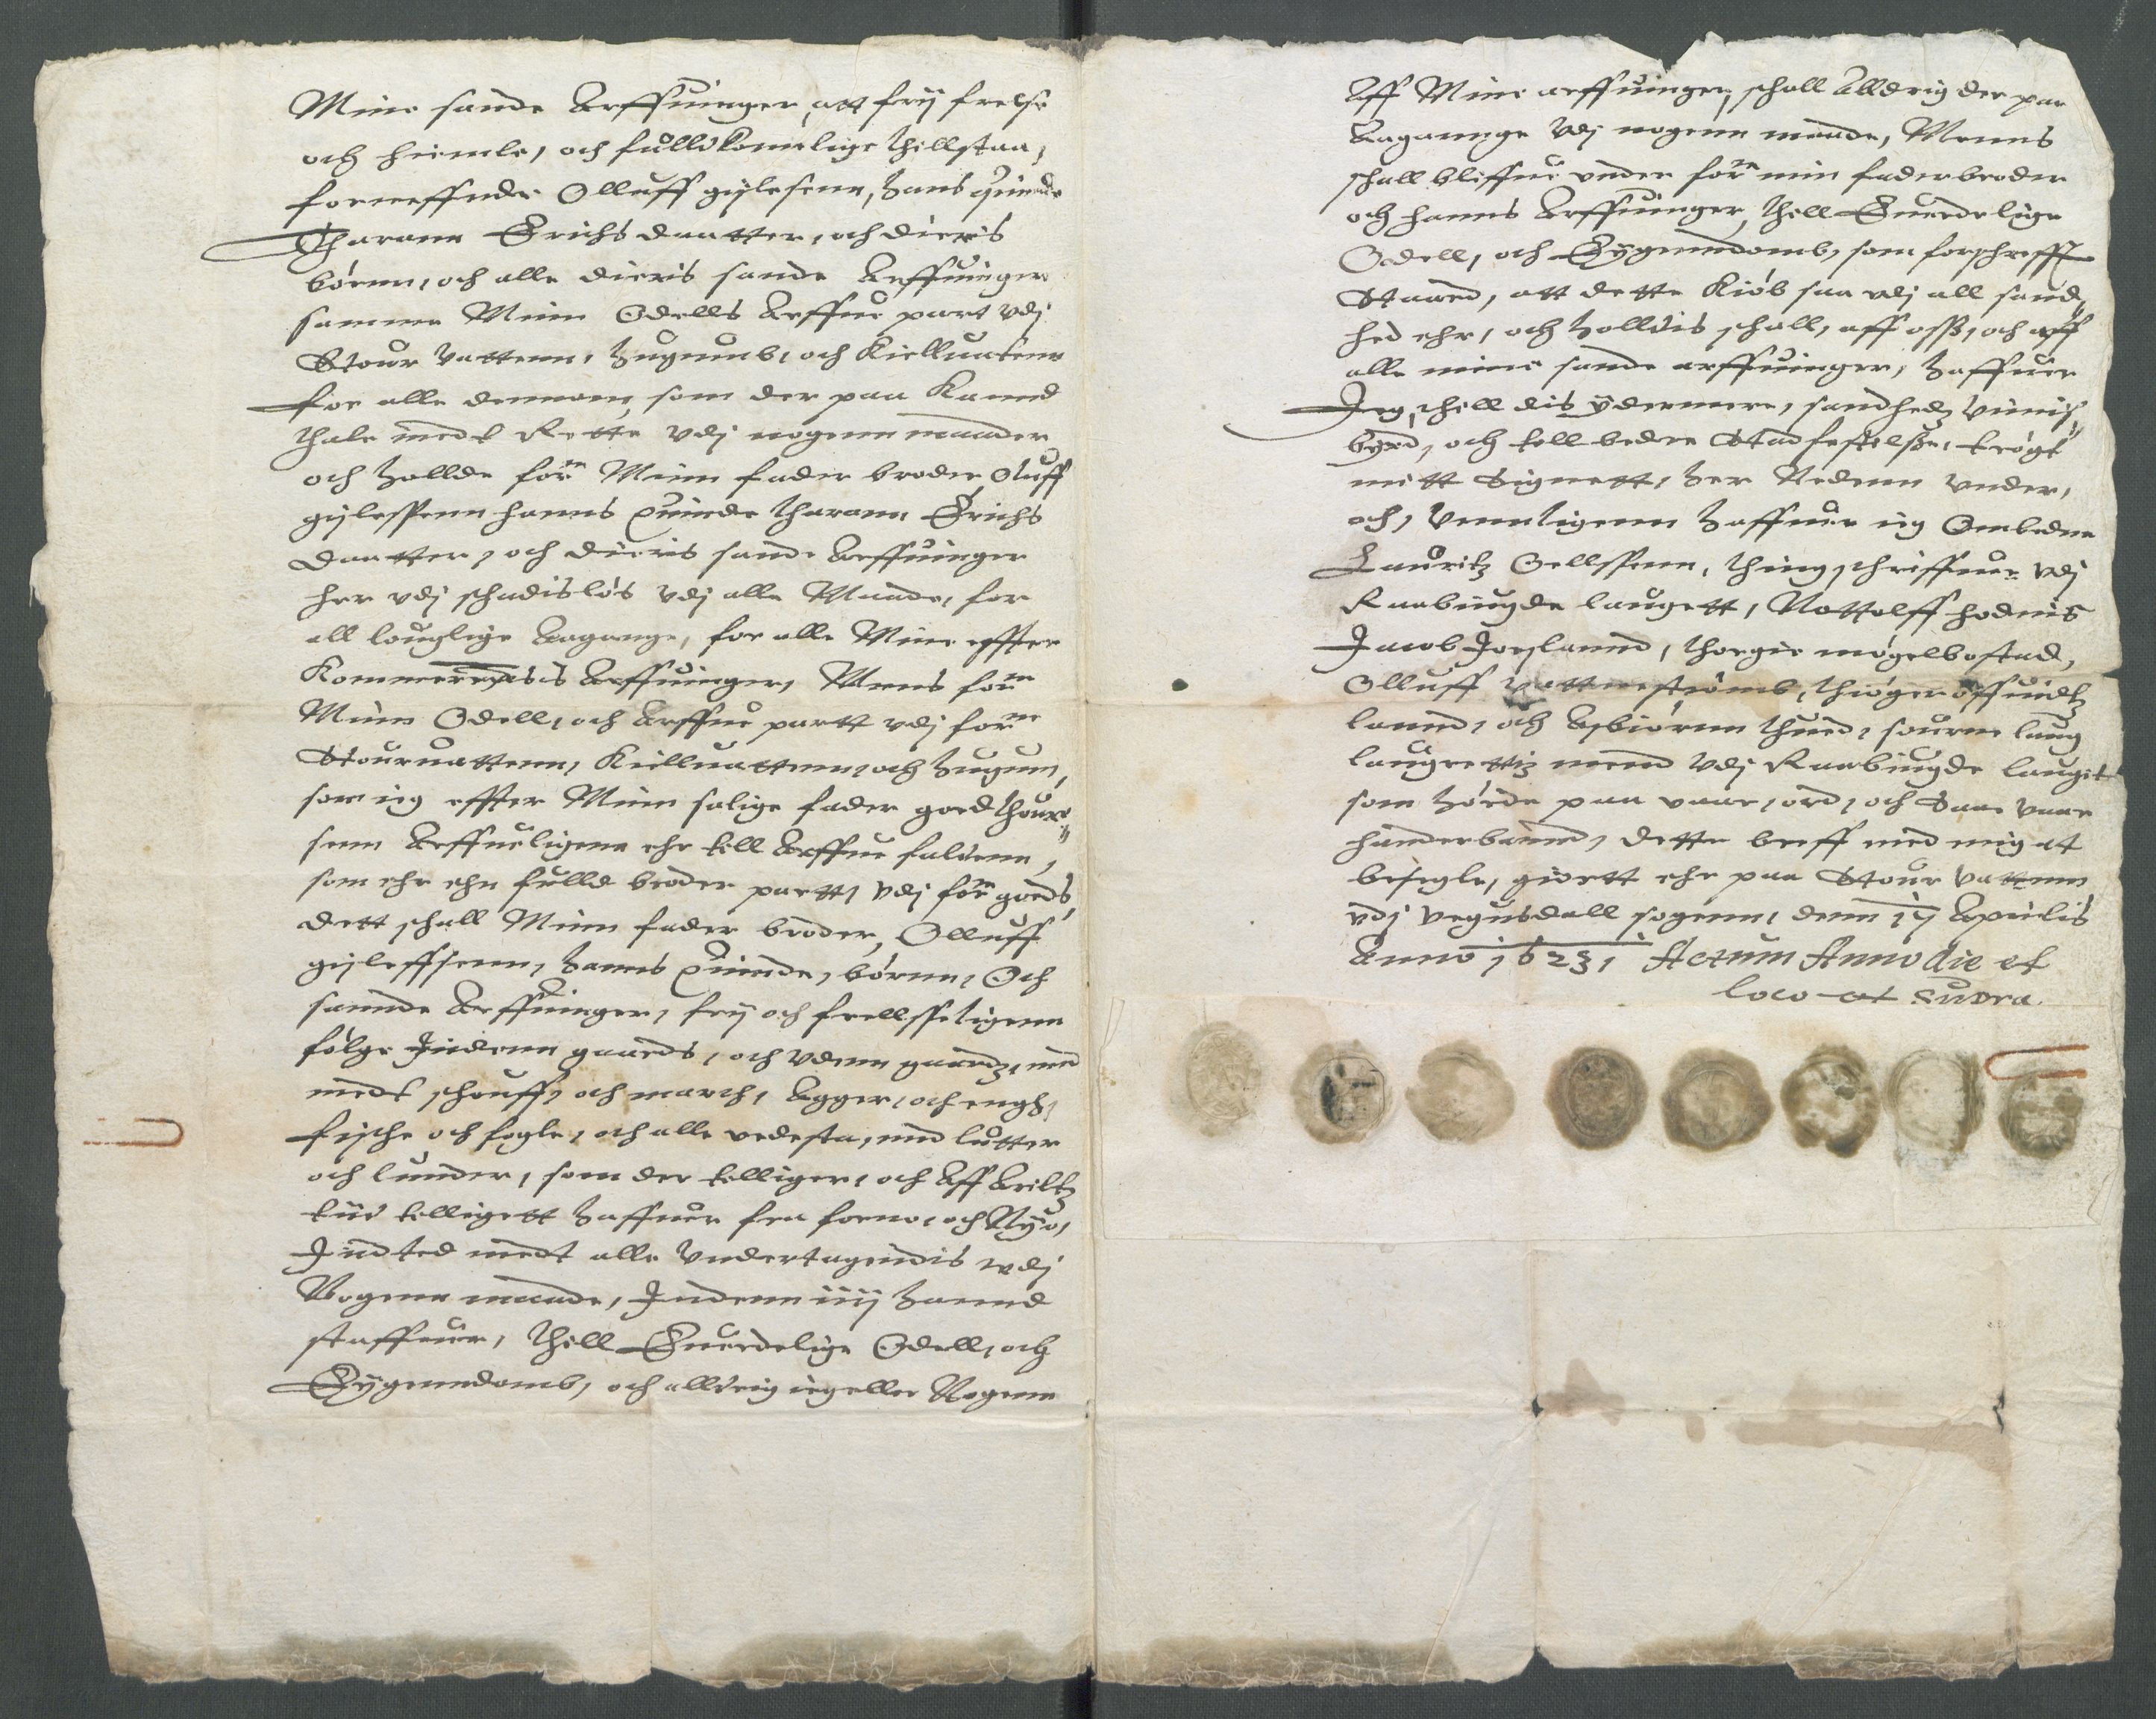 Mine sande Arffuinger, att frij frelse
och hiemle, och fulldkomelige thillstaa,
forneffnde Olluff gijlesenn, hans quinde
Tharann Erichs daatter, och dieris
børnn, och alle dieris sande Arffuinger
samme Minn Odells Arffue part vdj
Stour vattenn, hugumb, och Kielluatenn
for alle dennom, som der paa Kannd
thale medt Rette vdj nogenn maader
och hollde forne Minn fader broder, Oluff
gijlessenn hanns quinde tharann Erichs
daatter, och dieris sande Arffuinger
her vdj schadisløs vdj alle Maade, for
all louglige Aagange, for alle Mine effter
Kommerendis Arffuinger, Mens forne
Minn Odell, och Arffue partt vdj forne
Stouruattenn, Kielluattenn, och hugum,
som ieg effter Minn salige fader gord thour
senn Arffueligenn ehr till Arffue faldenn,
som ehr ehn fulld broder partt, vdj forne goeds,
dett schall Minn fader broder, Olluff
gijleffsenn, hanns quinde, børnn, Och
sannde Arffuinger, frij och frellsseligenn
følge Indenn gaards, och vdenn gaardz, med
medt schouff, och march, Agger, och engh,
fische och fogle, och alle vedesta, med lutter
och lunder, som der telliger, och Aff Arildz
tiid telligett haffuer fra forno, och Nyo,
Indted medt alle vndertagendis vdj
Nogenn maade, Indenn iiij hannd
staffuer, thill Euerdelige Odell, och
Eygenndomb, och alldrig ieg eller Nogenn
Aff Mine arffuinger, schall Alldrig der paa
Aagannge vdj nogenn maade, Menns
schall bliffue vnder forne min faderbroder
och hanns Arffuinger, thill Euerdelige
Odell, och Eygenndomb, som forschrefft
Staard, att dette Kiøb saa vdj all sand,
hed ehr, och holldis schall, aff oss, och aff
alle mine sande arffuinger, haffuer
Jeg, thill dis ydermere, sandhedz vinnis
byrd, och till bedre Stadfestelsse, trøgt
mitt Signett, her Nedenn vnder,
och, vennligenn haffuer ieg Ombeden
Lauritz Oellssenn, thingschriffuer vdj
Raabiugde laugett, Nottolff hodnis
Jacob Jorslannd, thorgie møgelbostad,
Olluff vattnestrømb, thiøger øffuidtz
lannd, och Asbiørnn thued, sourne laug
laugrettis mennd vdj Raabiugde laugit
som hørde paa vaar, ord, och Saae vaar
hannderbannd, dette breff med mig at
besegle, giortt ehr paa Stour vattenn
vdj vegusdall sogenn, denn 14 Aprilis
Anno 1623, Actum Anno die et
loco ut supra.